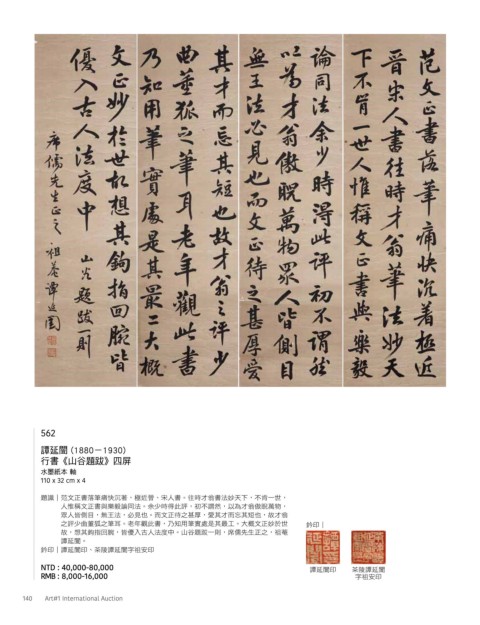 范文正書落筆痛快沉著極近
晉宋人書往時才翁筆法妙天
下不肯一世人惟稱文正書與樂毅
論同法余少時得此評初不謂然
以為才翁傲睨萬物眾人皆側目
無王法必見也而文正待之甚厚愛
其才而忘其短也故才翁之評少
曲董狐之筆耳老年觀此書
乃知用筆實處是其最工大概
文正妙於世故想其鉤指回腕皆
優入古人法度中 山谷題跋一則
席儒先生正之 祖菴譚延闓
562
譚延闓 (1880－1930)
行書《山谷題跋》四屏
水墨紙本 軸
110 x 32 cm x 4
題識｜范文正書落筆痛快沉著，極近晉、宋人書。往時才翁書法妙天下，不肯一世，
人惟稱文正書與樂毅論同法。余少時得此評，初不謂然，以為才翁傲睨萬物，
眾人皆側目，無王法，必見也。而文正待之甚厚，愛其才而忘其短也，故才翁
之評少曲董狐之筆耳。老年觀此書，乃知用筆實處是其最工。大概文正妙於世
故，想其鉤指回腕，皆優入古人法度中。山谷題跋一則，席儒先生正之，祖菴
譚延闓。
鈐印｜譚延闓印、茶陵譚延闓字祖安印
NTD : 40,000-80,000
RMB : 8,000-16,000
鈐印｜
譚延闓印
茶陵譚延闓
字祖安印
140 Art#1 International Auction